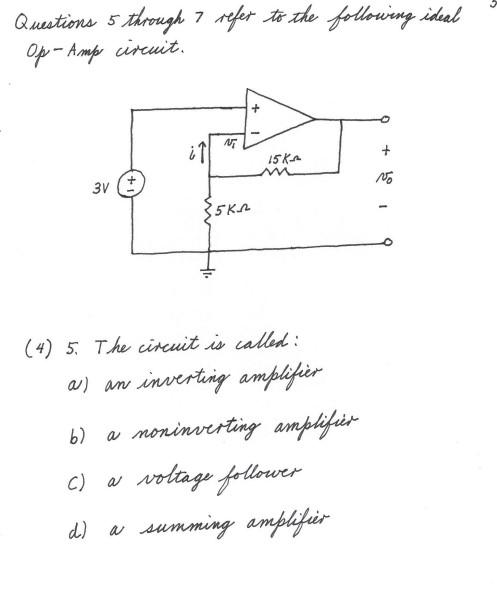 Questions 5 through 7 refer to the following ideal
Op-Amp circuit.
+
i↑
v₁
−
15 KΩ
+
3V
+
−
v₀
5 KΩ
−
(4) 5. The circuit is called:
a) an inverting amplifier
b) a noninverting amplifier
c) a voltage follower
d) a summing amplifier